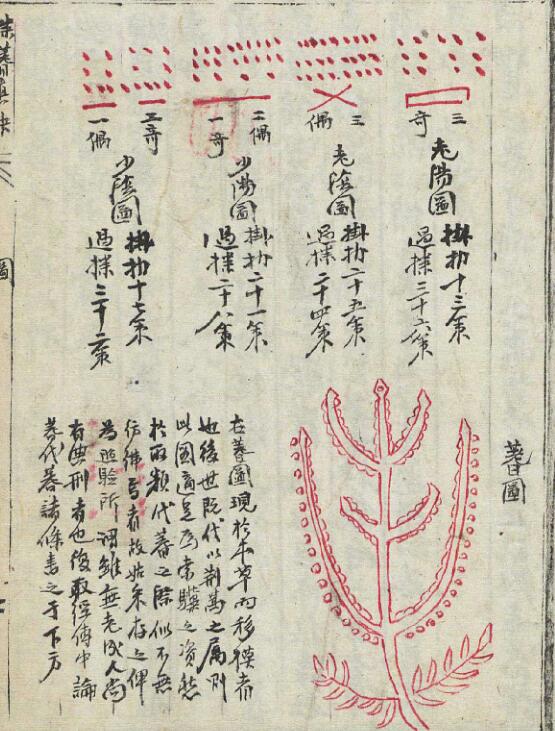 三
奇
老陽圖
掛扐十三策
過揲三十六策
三
偶
老陰圖
掛扐二十五策
過揲二十四策
二偶
一奇
少陽圖
掛扐二十一策
過揲二十八策
二奇
一偶
少陰圖
掛扐十七策
過揲三十二策
蓍圖
右蓍圖現於本草而移模者
也後世既代以荊蒿之屬則
此圖適足為索驥之資然
於取類代蓍之際似不無
彷彿焉者故姑采存之俾
為照驗所謂雖無老成人尚
有典刑者也後取經傳中論
蓍代蓍諸條書之于下方
圖